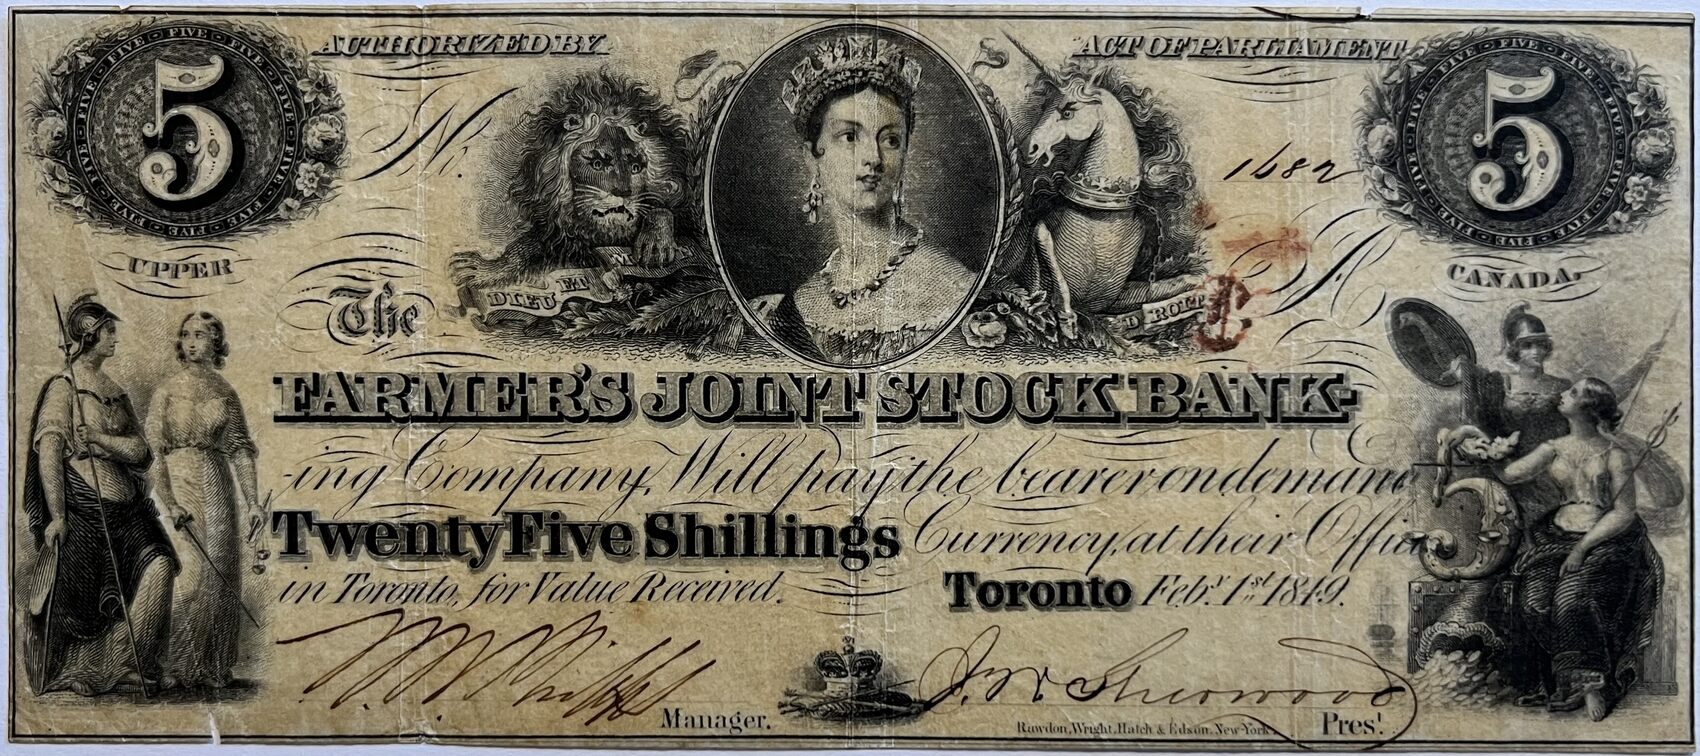 FIVE FIVE FIVE FIVE FIVE FIVE FIVE FIVE
5
AUTHORIZED BY
ACT OF PARLIAMENT
FIVE FIVE FIVE FIVE FIVE FIVE FIVE FIVE
5
No.
1682
A
UPPER
CANADA.
DIEU ET M
DROIT
The
FARMER'S JOINT STOCK BANK-
-ing Company, Will pay the bearer on demand
Twenty Five Shillings Currency, at their Office
5
in Toronto, for Value Received.
Toronto Feby. 1st 1849.
Manager.
J. W. Sherwood
Rawdon, Wright, Hatch & Edson, New-York.
Prest.